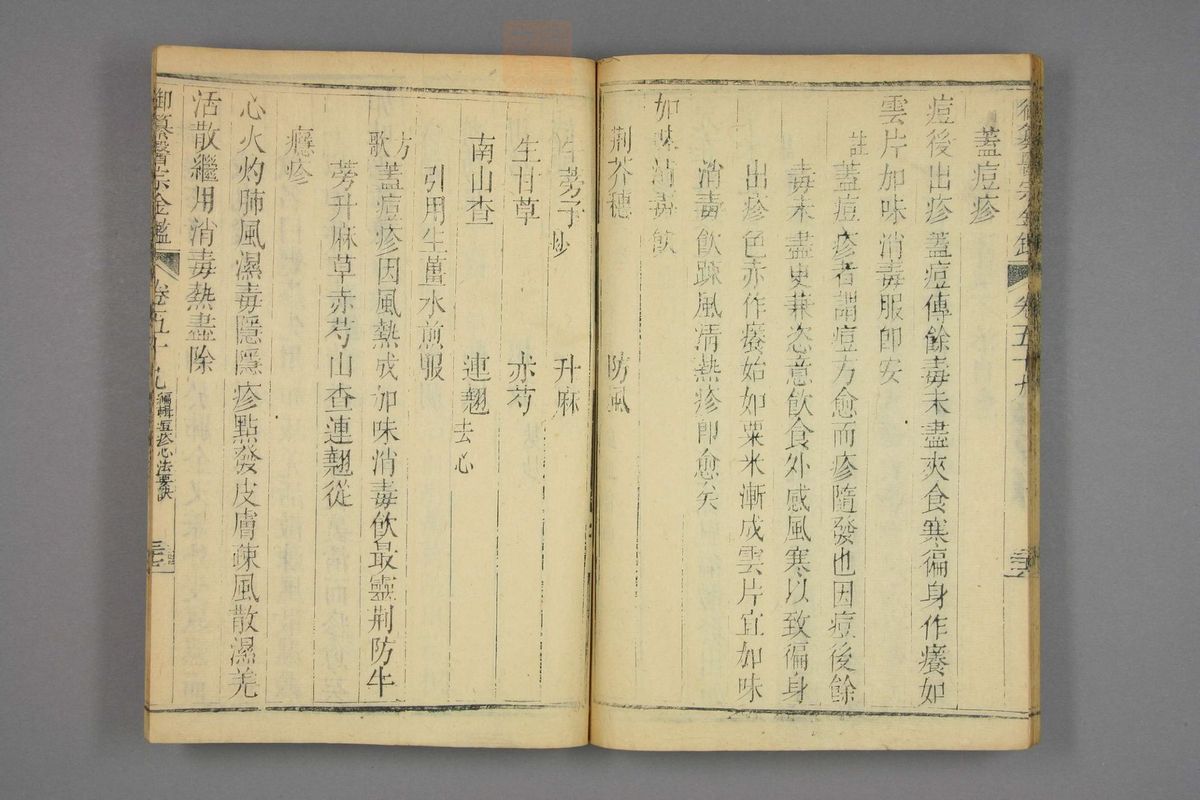 御纂醫宗金鑑 卷五十九
蓋痘疹
痘後出疹蓋痘傳餘毒未盡夾食寒徧身作癢如
雲片加味消毒服卽安
註
蓋痘疹者謂痘方愈而疹隨發也因痘後餘
毒未盡更兼恣意飲食外感風寒以致徧身
出疹色赤作癢始如粟米漸成雲片宜加味
消毒飲踈風清熱疹卽愈矣
加味消毒飲
荆芥穗 防風
牛蒡子炒 升麻
生甘草 赤芍
南山查 連翹去心
引用生薑水煎服
方歌
蓋痘疹因風熱成加味消毒飲最靈荆防牛
蒡升麻草赤芍山查連翹從
癮疹
心火灼肺風濕毒隱隱疹點發皮膚疎風散濕羌
活散繼用消毒熱盡除
御纂醫宗金鑑 卷五十九 編輯痘疹心法要訣